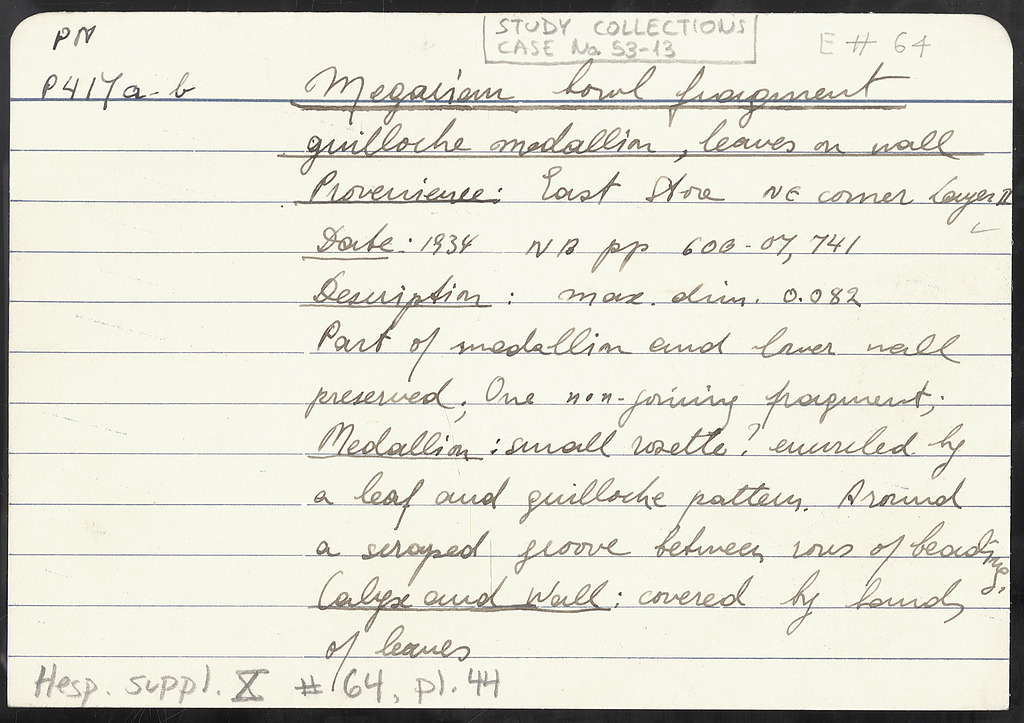 PN
STUDY COLLECTIONS
CASE No 53-13
E # 64
P417a-b
Megarian bowl fragment
guilloche medallion, leaves on wall
Provenience: East Stoa NE corner Layer II
Date: 1934 NB pp 600-07, 741
Description: max. dim. 0.082
Part of medallion and lower wall
preserved. One non-joining fragment;
Medallion: small rosette? encircled by
a leaf and guilloche pattern. Around
a scraped groove between rows of beading.
Calyx and Wall: covered by bands
of leaves
Hesp. suppl. X # 64, pl. 44